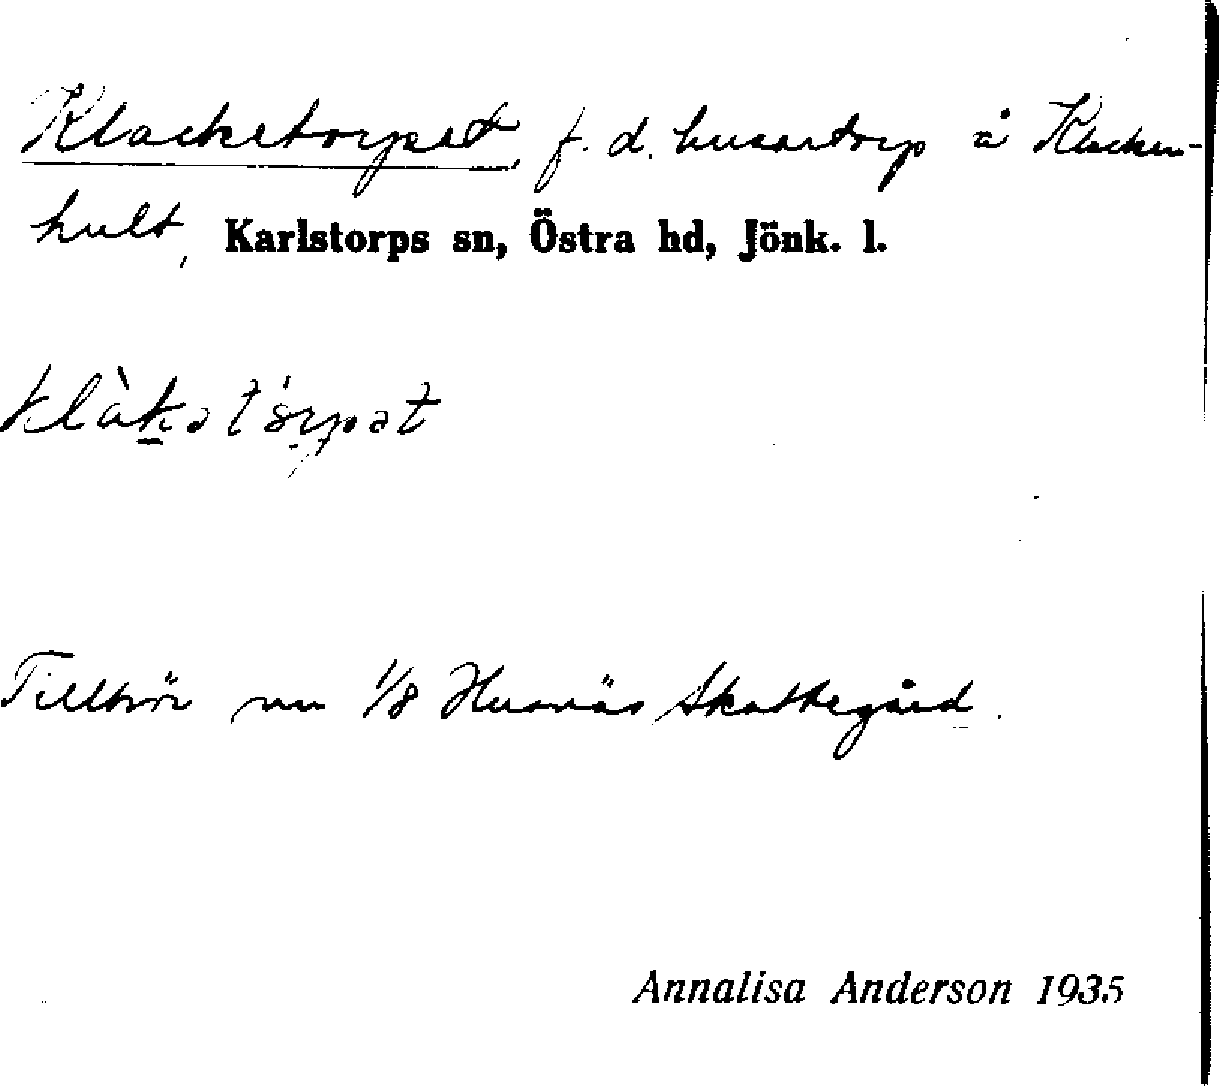 Klacketorpet f.d. husartorp å Klacken-
hult, Karlstorps sn, Östra hd, Jönk. l.
klàkət᾽orpət
Tillhör nu 1/8 Husnäs Skattegård.
Annalisa Anderson 1935